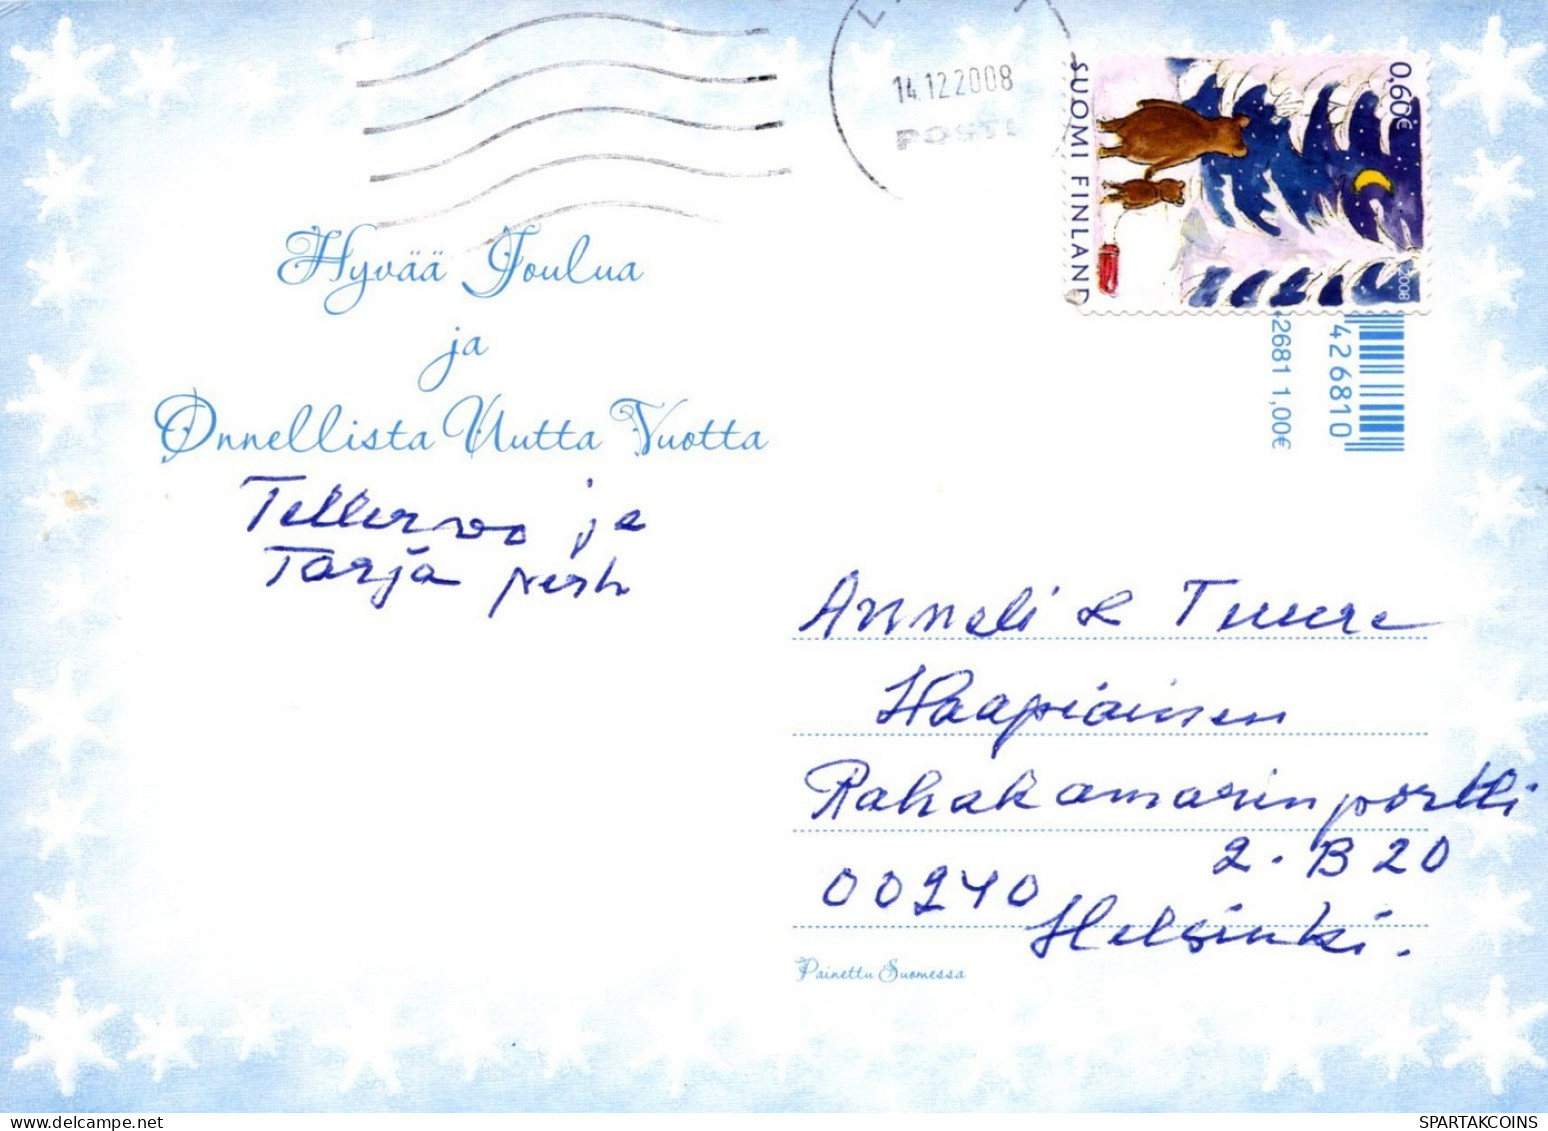 14.12.2008
POSTI
SUOMI FINLAND
0,60€
2008
2681 1,00€
426810
Hyvää Joulua
ja
Onnellista Uutta Vuotta
Tellervo ja
Tarja perh
Anneli & Tuure
Haapiainen
Rahakamarinportti
2. B 20
00240
Helsinki.
Painettu Suomessa
SPARTAKCOINS